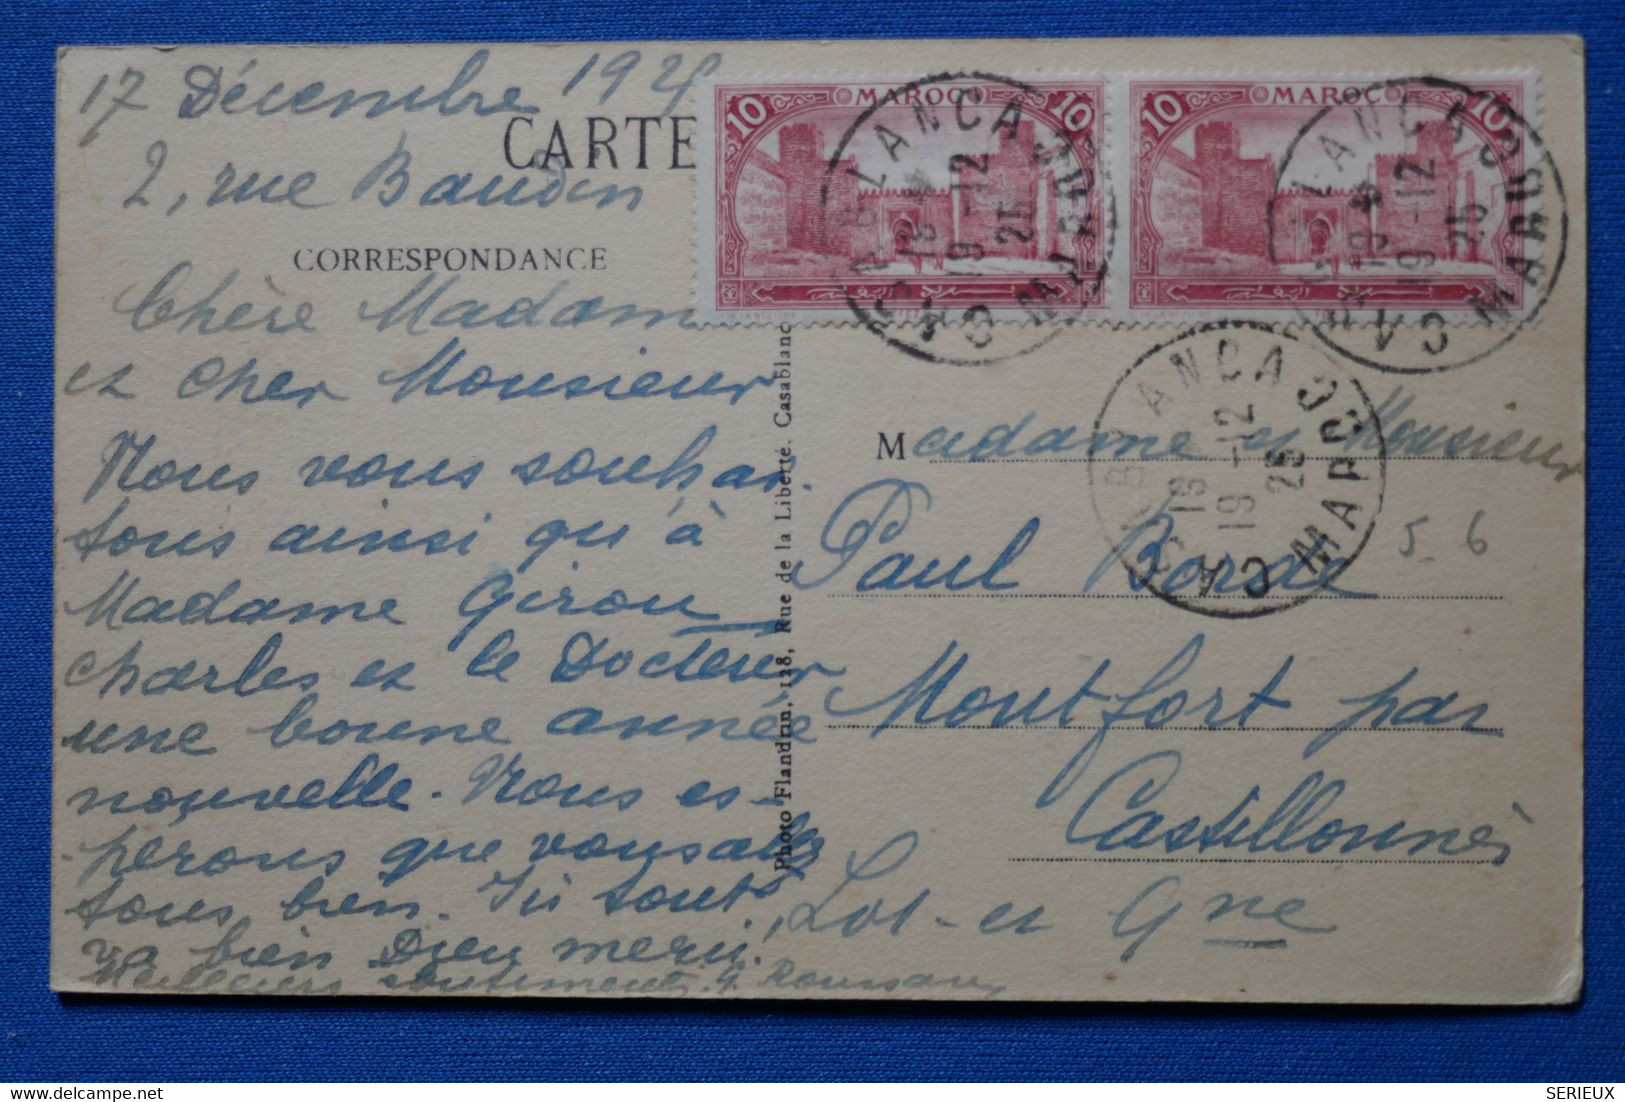 17 Décembre 192
2, rue Baudin
CARTE
CORRESPONDANCE
Chère Madame
et cher Monsieur
Nous vous souhai-
tons ainsi qu'à
Madame Girou
Charles et le Docteur
une bonne année
nouvelle. Nous es-
perons que vous allez
tous bien. Ici tout
va bien Dieu merci!
Meilleurs sentiments.
Photo Flandrin, 128, Rue de la Liberté. Casablanc
10 MAROC 10
10 MAROC 10
CASABLANCA MAROC
19 -12
25
CASABLANCA MAROC
19 -12
25
CASABLANCA MAROC
19 -12
25
Madame et Monsieur
Paul
5 6
Montfort par
Castillonnès
Lot-et Gne
SERIEUX